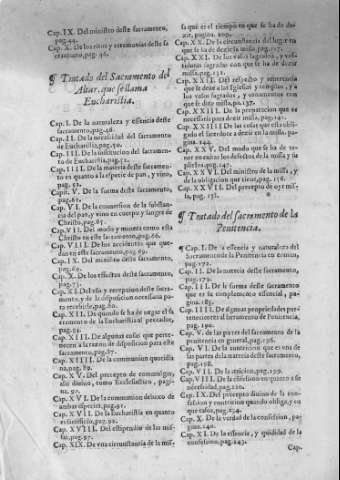 Cap. IX. Del ministro deste sacramento,
pag.44.
Cap. X. De los ritos y ceremonias deste sa
cramento, pag.46.
¶ Tratado del Sacramento del
Altar, que se llama
Eucharistia.
Cap. I. De la naturaleza y essencia deste
sacramento, pag.48.
Cap. II. De la necessidad del sacramento
de Eucharistia, pag.50.
Cap. III. De la institucion del sacramen-
to de Eucharistia, pag.52.
Cap. IIII. De la materia deste sacramen-
to en quanto a la especie de pan, y vino,
pag.
Capit. V. De la forma deste sacramento,
pag.61.
Cap. VI. De la conuersion de la substan-
cia del pan, y vino en cuerpo y sangre de
Christo, pag.
Cap. VII. Del modo y manera como esta
Christo en este sacramento, pag.66.
Cap. VIII. De los accidentes que que-
dan en este sacramento, pag.69.
Cap. IX. Del ministro deste sacramento,
pag.
Cap. X. De los effectos deste sacramento,
pag.
Cap. XI. Del uso y recepcion deste sacra-
mento, y de la disposicion necessaria pa-
ra recebirle, pag.
Cap. XII. De quando se ha de negar el sa
cramento de la Eucharistia al peccador,
pag.
Cap. XIII. De algunas cosas que perte-
necen a la razon de disposicion para este
sacramento, pag.87.
Cap. XIIII. De la communion quotidia
na, pag.
Cap. XV. Del precepto de comulgar,
assi diuino, como Ecclesiastico, pagi-
na.
Cap. XVI. De la communion debaxo de
ambas especies, pag.
Cap. XVII. De la Eucharistia en quanto
es sacrificio, pag.
Cap. XVIII. Del estipendio de las mis-
sas, pag.97.
Cap. XIX. De una circunstancia de la mis-
sa que es el tiempo en que se ha de de-
zir, pagina.
Cap. XX. De la circunstancia del lugar en
que se ha de dezir la missa, pag.
Cap. XXI. De los vasos sagrados, y ves-
tiduras sagradas con que se ha de dezir
missa, pag.
Cap. XXII. Del respecto y reuerencia
que se deue a las Iglesias y templos, y a
los vasos sagrados, y ornamentos con
que se dize missa, pa.137.
Cap. XXIII. De la preparacion que es ne-
cessaria para dezir missa, pag.141.
Cap. XXIIII. De las cosas que esta obli-
gado el sacerdote a dezir en la missa, pa-
gina.
Cap. XXV. Del modo que se ha de te-
ner en euitar los defectos de la missa y su-
plirlos, pag.
Cap. XXVI. Del ministro de la missa, y
de la obligacion que tiene, pag.
Cap. XXVII. Del precepto de oyr mis-
sa, pag.
¶ Tratado del sacramento de la
Penitencia.
Cap. I. De la essencia y naturaleza del
Sacramento de la Penitencia en comun,
pag.
Cap. II. De la materia deste sacramento,
pag.
Cap. III. De la forma deste sacramento
que es la complemento essencial, pa-
gina.
Cap. IIII. De algunas propiedades per-
tenecientes al Sacramento de Penitencia,
pag.190.
Cap. V. de las partes del sacramento de la
penitencia en general, pag.196.
Cap. VI. De la contricion que es una de
las partes de la materia deste sacramento,
pag.198.
Cap. VII. De la atricion, pag.199.
Cap. VIII. De la confession en quanto a su
necessidad, pag.
Cap. IX. Del precepto diuino de con-
fession y contricion quando obliga, y en
que casos, pag.234.
Cap. X. De la verdad de la confession, pa-
gina.240.
Cap. XI. De la essencia, y quididad de la
confession, pag.243.
Cap-